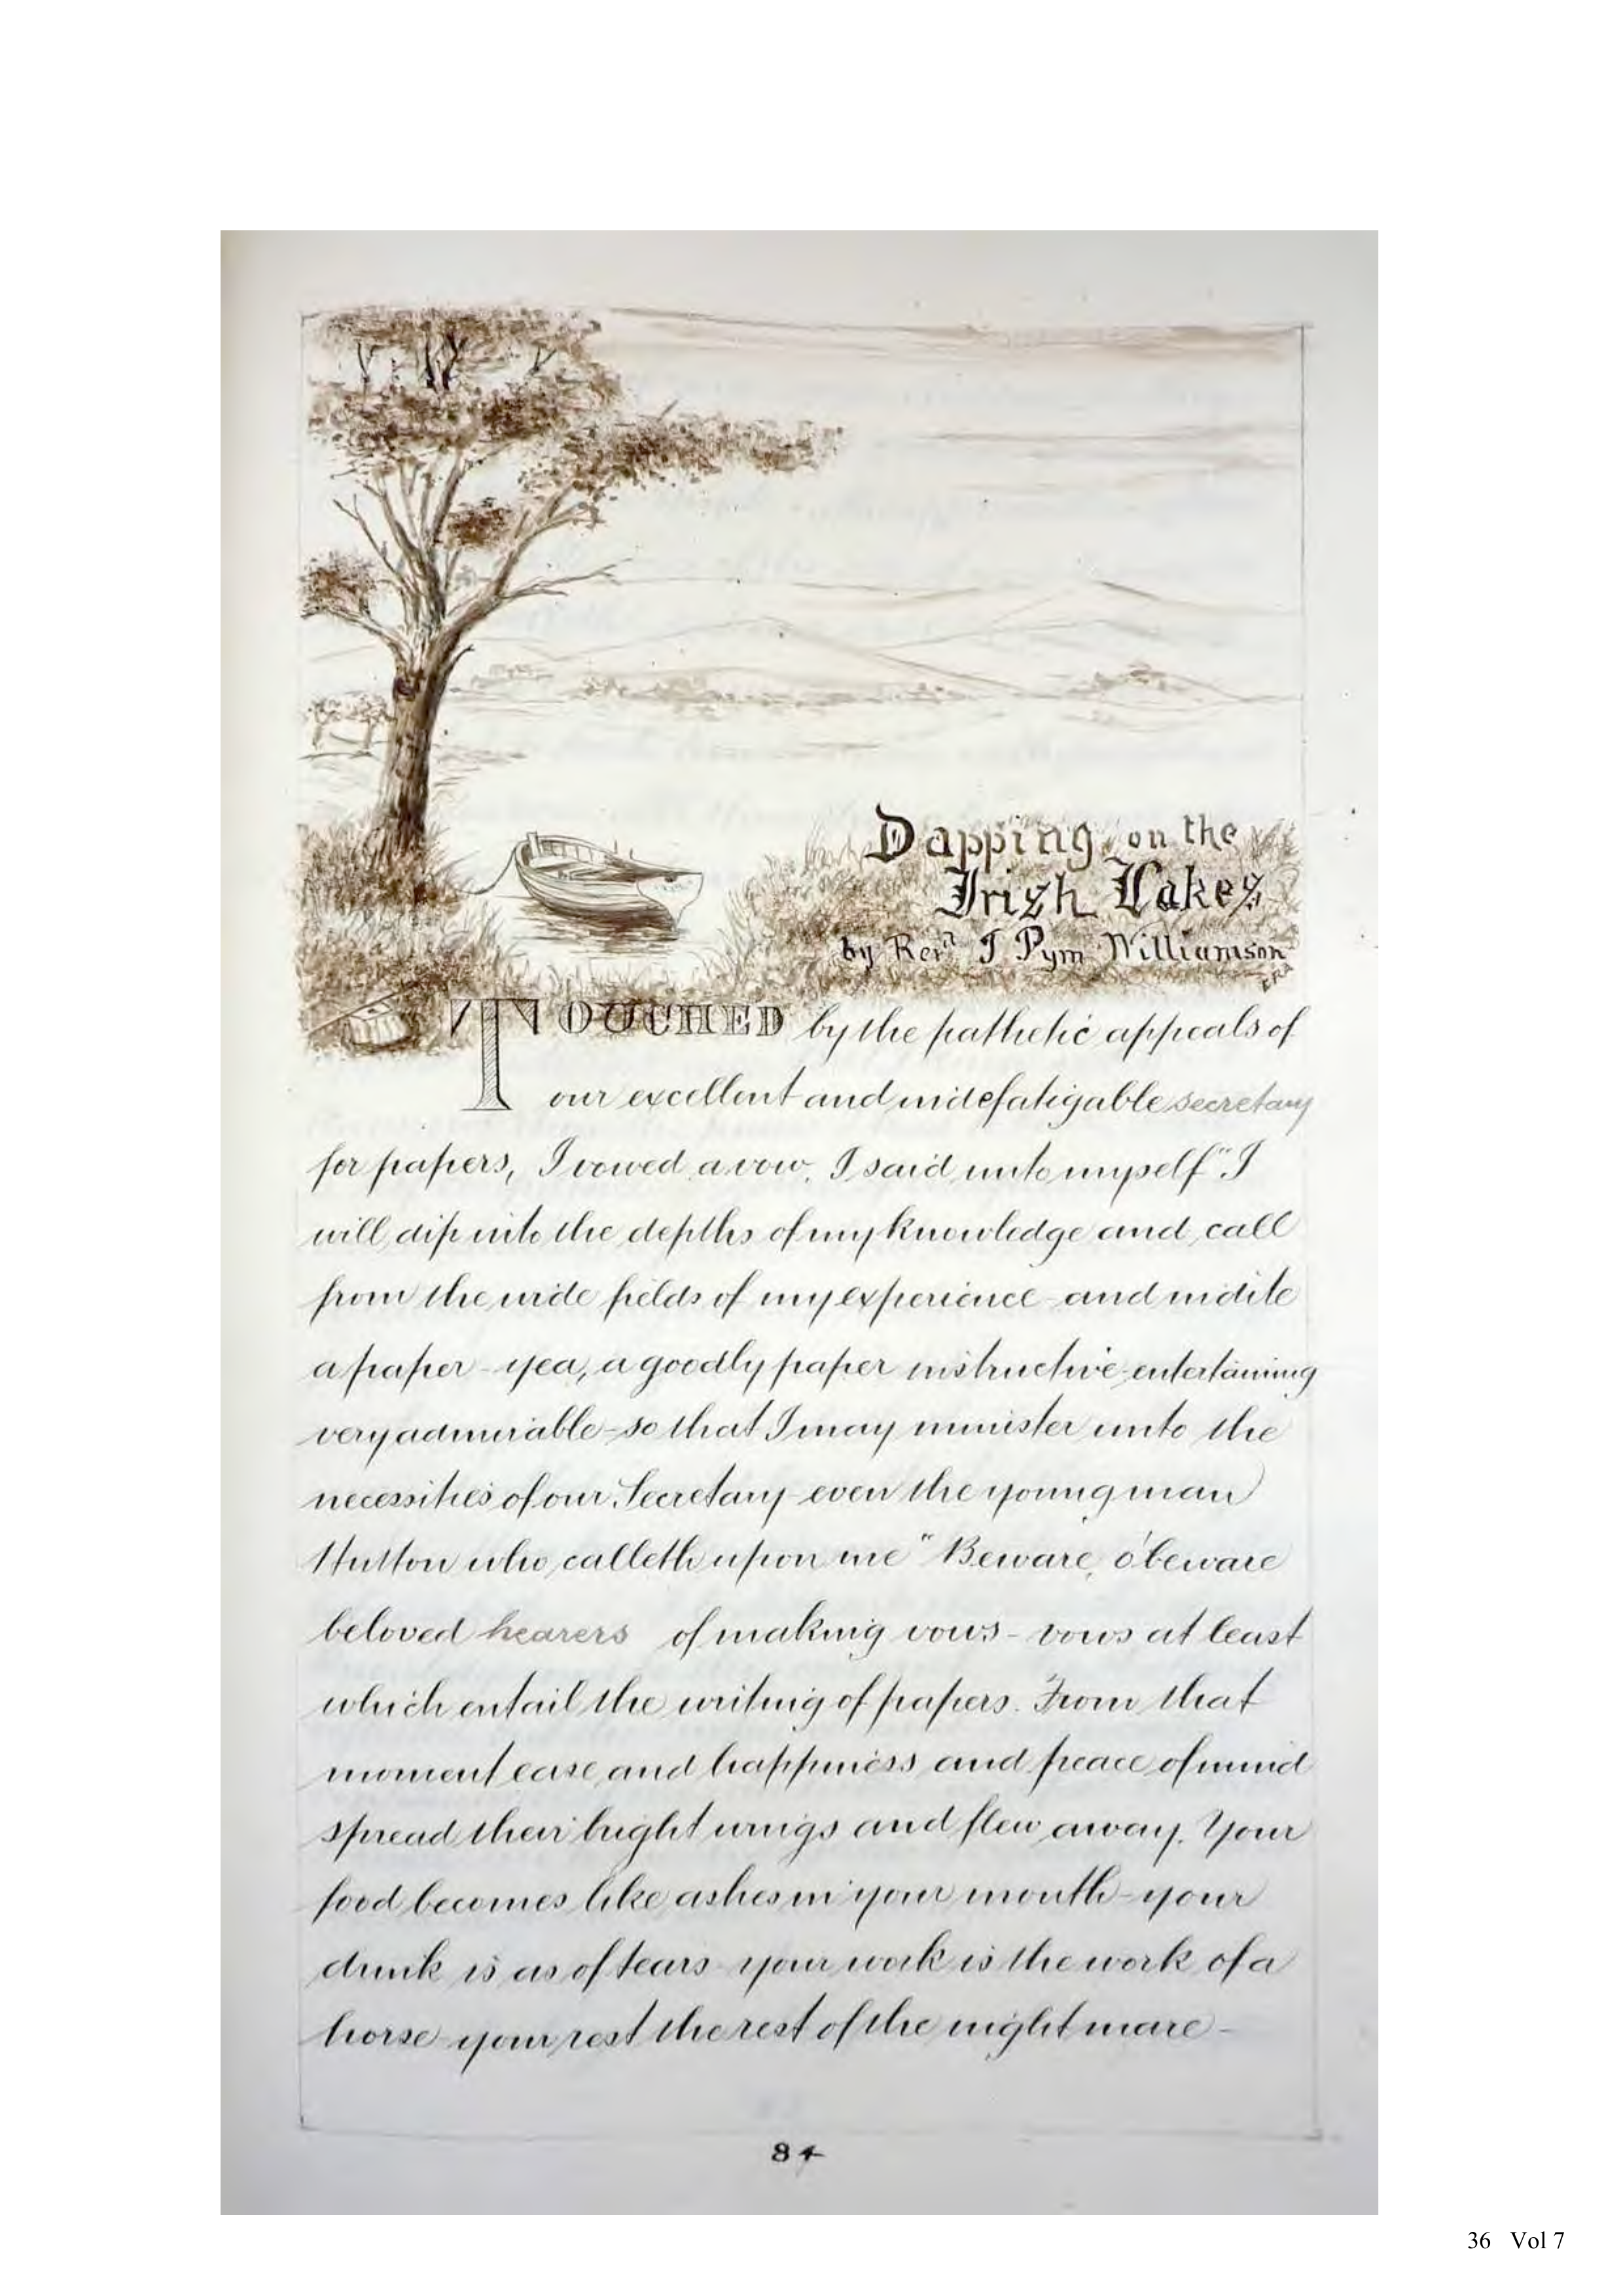 Dapping on the
Irish Lakes
by Revd J Pym Williamson
TOUCHED by the pathetic appeals of
our excellent and indefatigable secretary
for papers, I vowed a vow. I said unto myself "I
will dip into the depths of my knowledge and call
from the wide fields of my experience - and indite
a paper - yea, a goodly paper instructive - entertaining
very admirable - so that I may minister unto the
necessities of our Secretary - even the young man
Hutton who calleth upon me" Beware, o' beware
beloved hearers of making vows - vows at least
which entail the writing of papers. From that
moment ease and happiness and peace of mind
spread their bright wings and flew away. Your
food becomes like ashes in your mouth - your
drink is as of tears - your work is the work of a
horse - your rest the rest of the night mare -
84
36 Vol 7